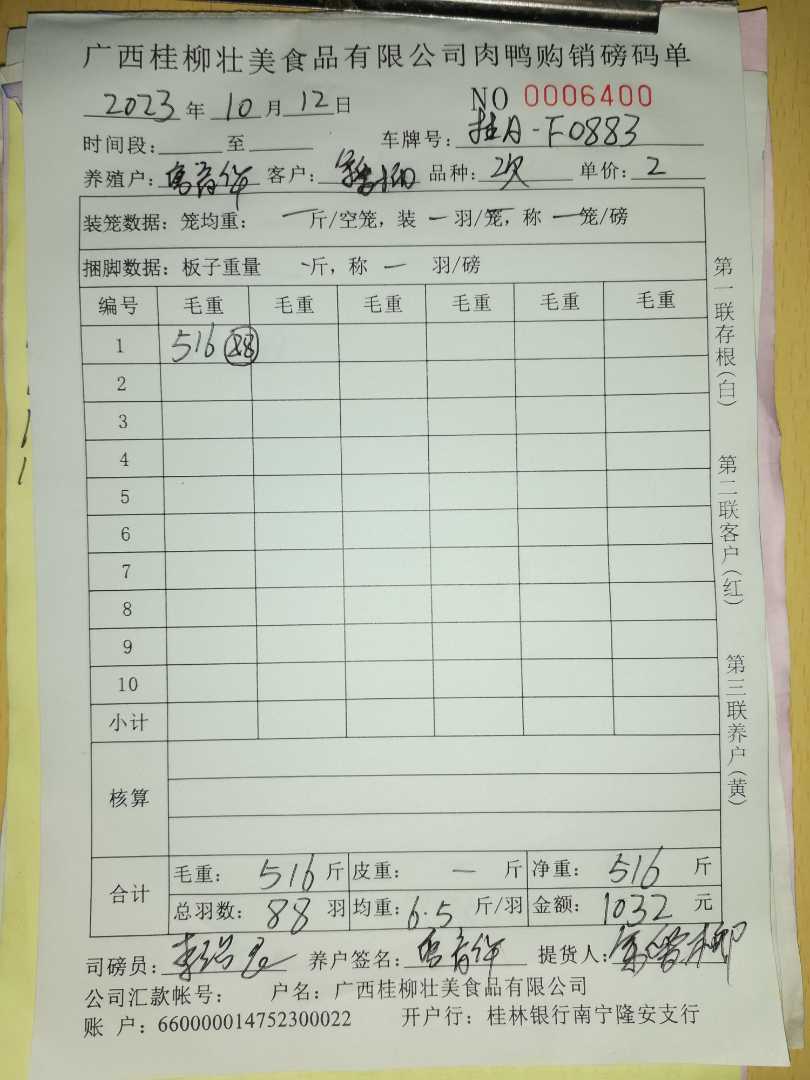 广西桂柳壮美食品有限公司肉鸭购销磅码单
2023年10月12日 NO 0006400
时间段: 至 车牌号: 桂A-F0883
养殖户: 客户: 品种: 次 单价: 2
装笼数据: 笼均重: 一斤/空笼, 装一羽/笼, 称一笼/磅
捆脚数据: 板子重量 一斤, 称一 羽/磅
编号 毛重 毛重 毛重 毛重 毛重 毛重
1 516 88
2
3
4
5
6
7
8
9
10
小计
核算
合计 毛重: 516斤 皮重: 一 斤 净重: 516 斤
总羽数: 88 羽 均重: 6.5 斤/羽 金额: 1032 元
司磅员: 养户签名: 提货人:
公司汇款帐号: 户名: 广西桂柳壮美食品有限公司
账 户: 660000014752300022 开户行: 桂林银行南宁隆安支行
第一联存根(白)
第二联客户(红)
第三联养户(黄)